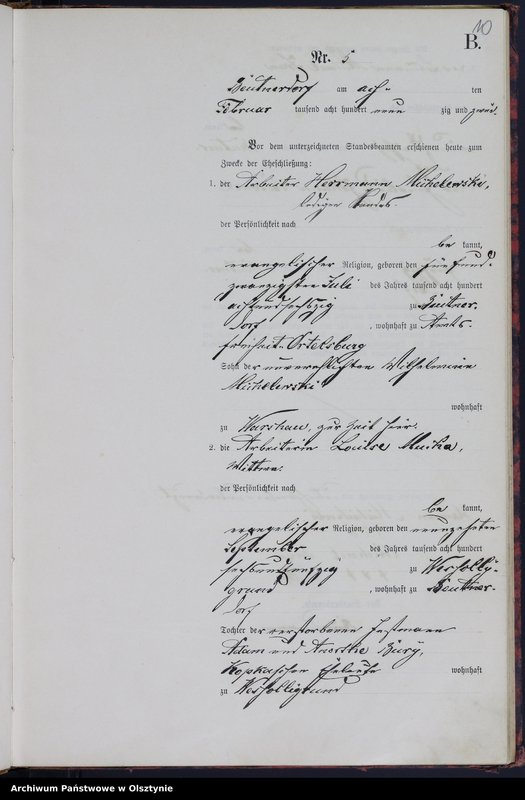 10
B.
Nr. 5
Beutnerdorf am acht ten
Februar tausend acht hundert neun zig und zwei.
Vor dem unterzeichneten Standesbeamten erschienen heute zum
Zwecke der Eheschließung:
1. der Arbeiter Herrmann Michelewski,
ledigen Standes.
der Persönlichkeit nach
be kannt,
evangelischer Religion, geboren den fünfund-
zwanzigsten Juli des Jahres tausend acht hundert
achtundsechszig zu Beutner-
dorf , wohnhaft zu Amts-
freiheit-Ortelsburg
Sohn der unverehelichten Wilhelmine
Michelewski
wohnhaft
zu Warschau, zur Zeit hier.
2. die Arbeiterin Louise
Wittwe.
der Persönlichkeit nach
be kannt,
evangelischer Religion, geboren den neunzehnten
September des Jahres tausend acht hundert
sechsundfünfzig zu
grund , wohnhaft zu Beutner-
dorf
Tochter der verstorbenen Instmann
Adam und
Eheleute wohnhaft
zu
Archiwum Państwowe w Olsztynie